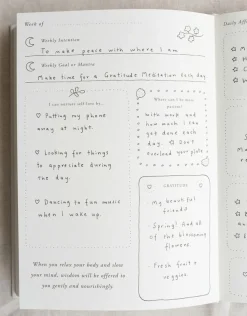 Week of
Weekly Intention
To make peace with where I am
Weekly Goal or Mantra
Make time for a Gratitude Meditation each day
I can nurture self-love by...
Putting my phone
away at night.
Looking for things
to appreciate during
the day.
Dancing to fun music
when I wake up.
Where can I be more
present?
With work and
how much I can
get done each
day. Don't
overload your plate
GRATITUDE
My beautiful
friends
Spring! And all
of the blooming
flowers
Fresh fruit &
veggies.
When you relax your body and slow
your mind, wisdom will be offered to
you gently and nourishingly.
Daily